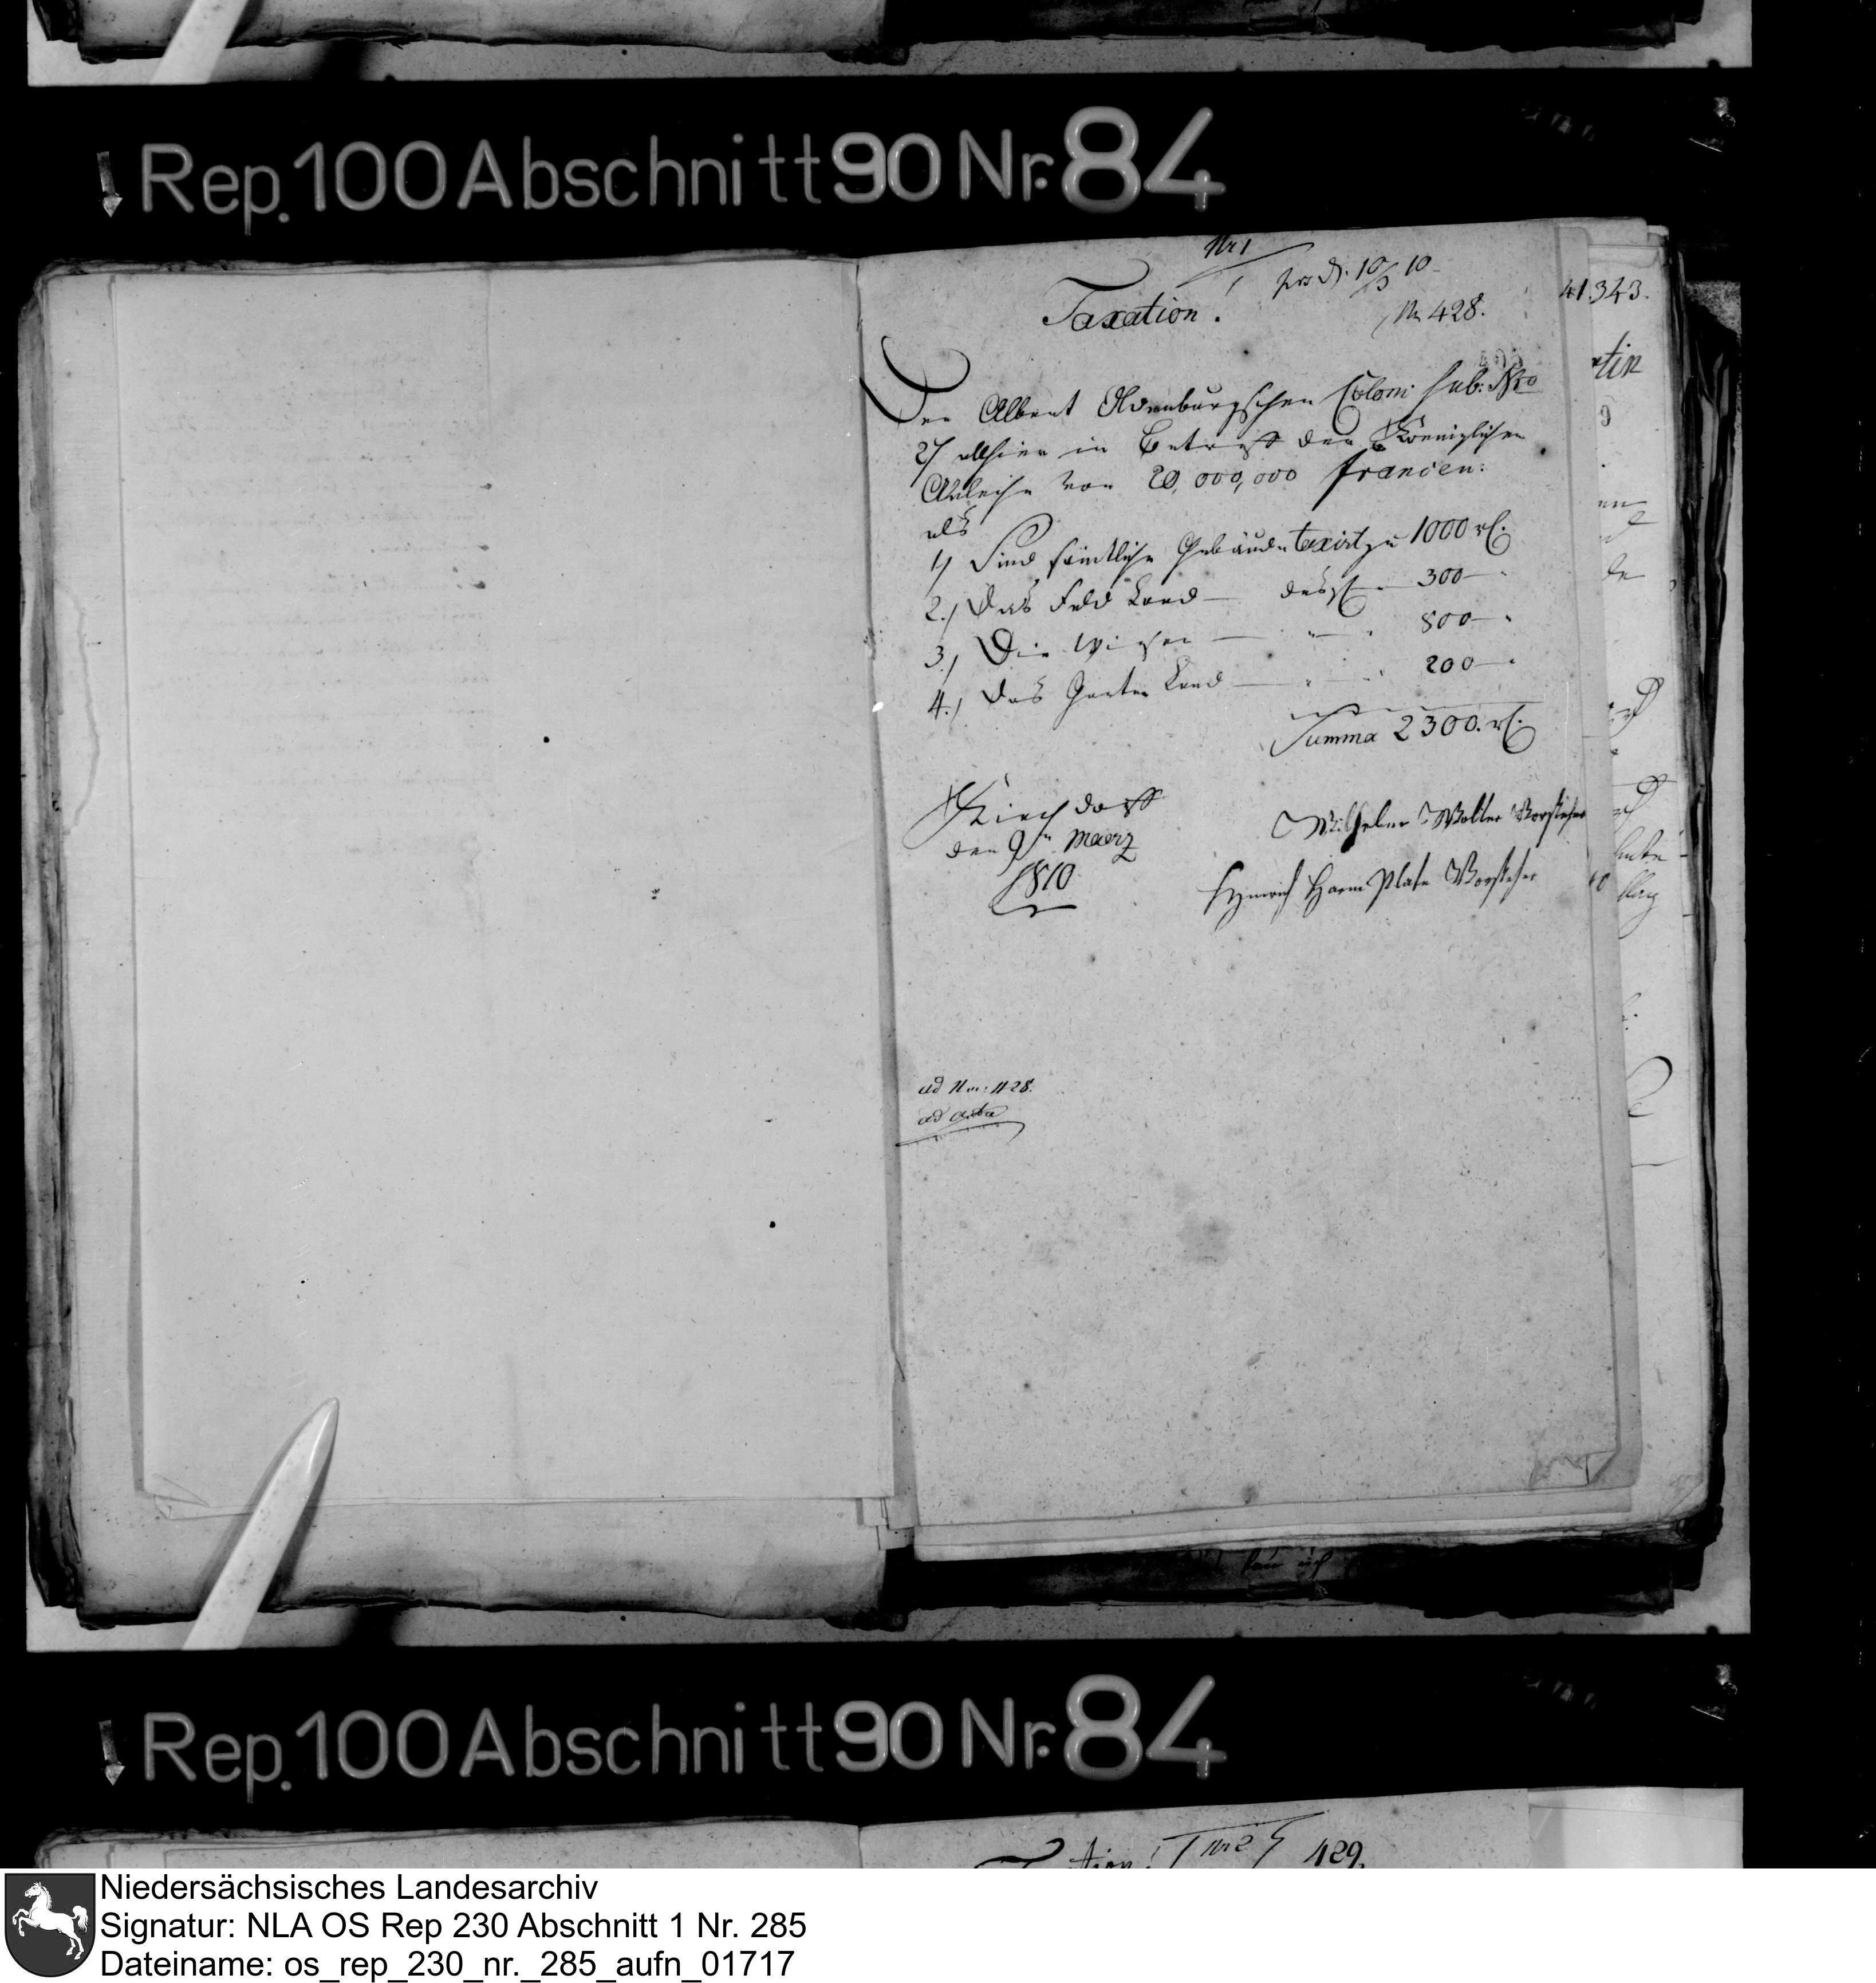 Rep. 100 Abschnitt 90 Nr. 84
Nr 1
10/3 10
Taxation.
Nr 428.
41.343.
Der Albert Oldenburgschen Coloni sub: Nro
27 allhier in Betreff der Koeniglichen
Anleihe von 20,000,000 francen:
als
1) Sind sämtliche Gebäude taxirt zu 1000 rl.
2.) Das Feld Land — desgl. 300 —
3.) Die Wiesen — " — " 800 — "
4.) Das Garten Land — " — " 200 — "
Summa 2300. rl.
Kirchdorff
den 9ten Maerz
1810
Wilhelm Wolter Vorsteher
Hynrich Harm Plate Vorsteher
ad Nr: 428.
ad acta
Rep. 100 Abschnitt 90 Nr. 84
Nr 2 429.
Niedersächsisches Landesarchiv
Signatur: NLA OS Rep 230 Abschnitt 1 Nr. 285
Dateiname: os_rep_230_nr._285_aufn_01717